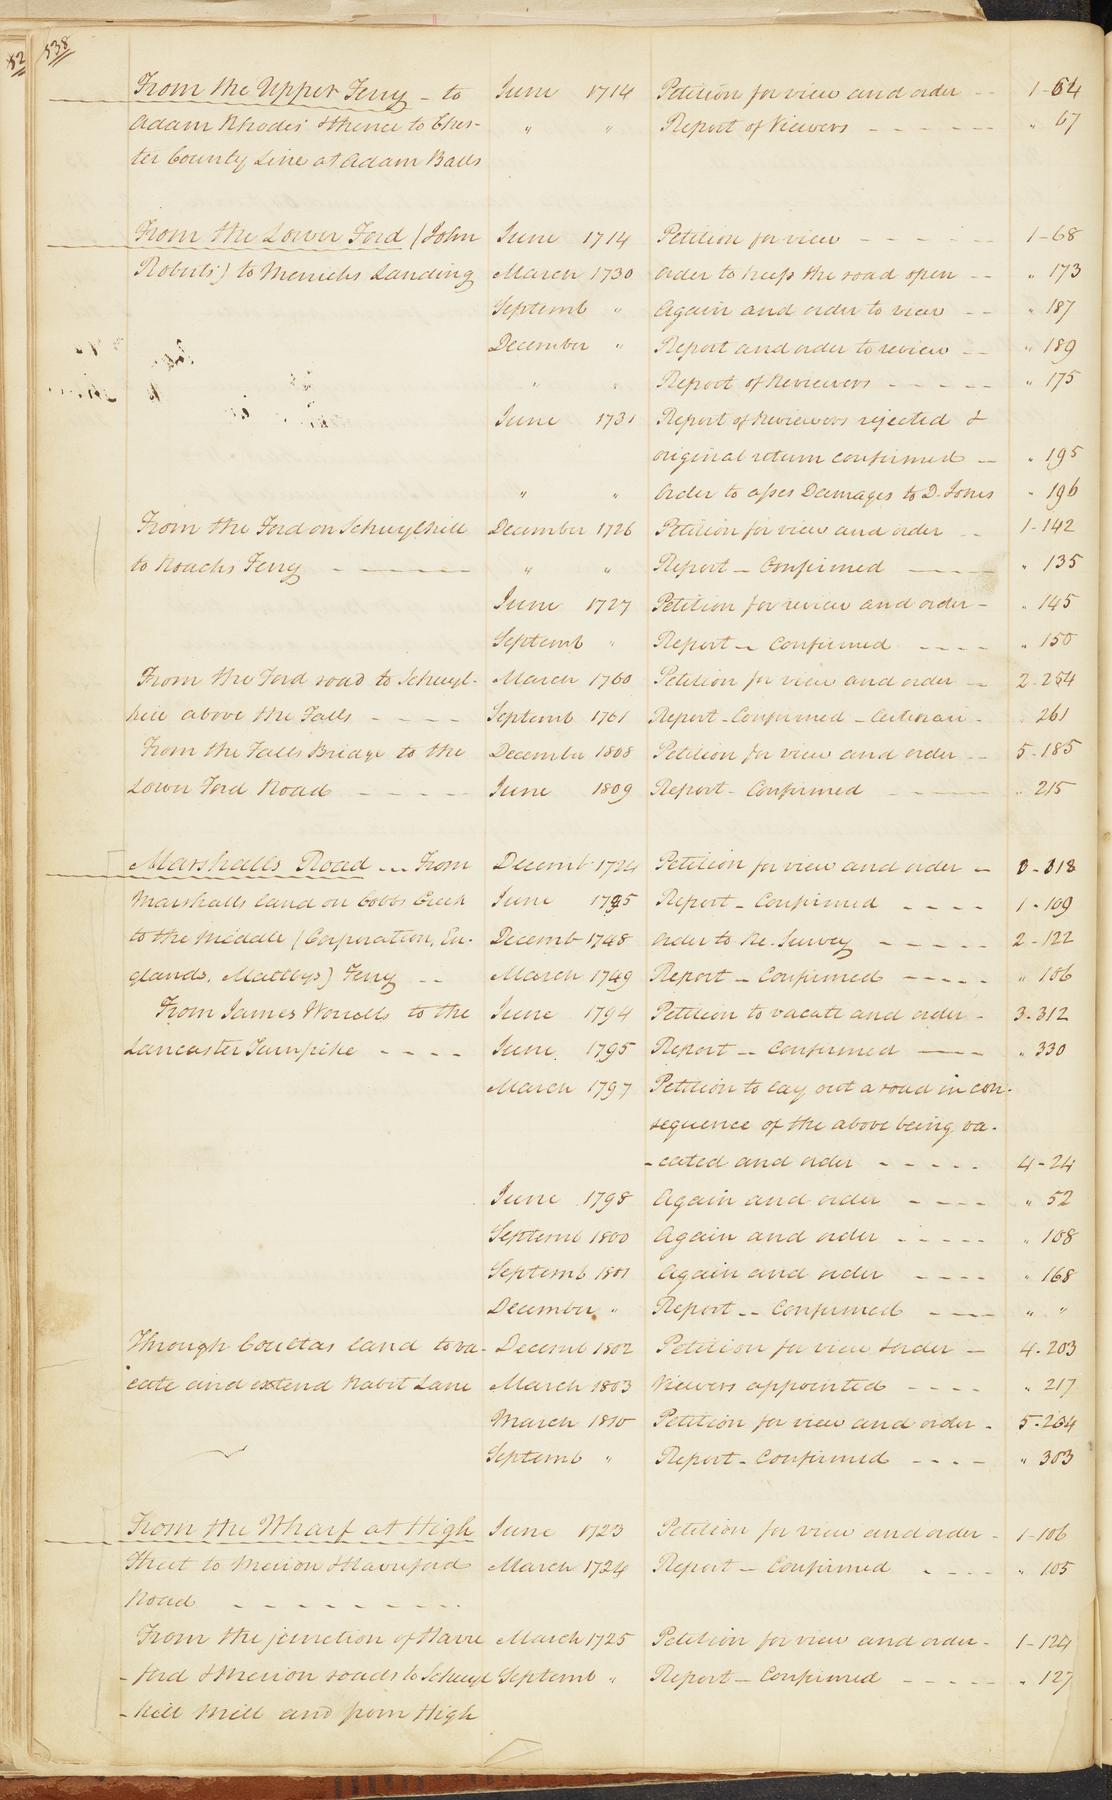 538
From the Upper Ferry - to June 1714 Petition for view and order -- 1-64
Adam Rhodes' & thence to Ches- " " Report of Viewers ------ " 67
ter County Line at Adam Balls
From the Lower Ford (John June 1714 Petition for view ------ 1-68
Roberts') to Merricks Landing March 1730 Order to keep the road open -- " 173
Septemb " Again and order to view -- " 187
December " Report and order to review -- " 189
" " Report of Reviewers ----- " 175
June 1731 Report of Reviewers rejected &
original return confirmed -- " 195
" " Order to asses Damages to D. Jones " 196
From the Ford on Schuylkill December 1726 Petition for view and order -- 1-142
to Roachs Ferry ------ " " Report - Confirmed ---- " 135
June 1727 Petition for review and order - " 145
Septemb " Report - Confirmed ---- " 150
From the Ford road to Schuyl- March 1760 Petition for view and order -- 2-254
kill above the Falls ---- Septemb 1761 Report - Confirmed - Certiorari - 261
From the Falls Bridge to the December 1808 Petition for view and order -- 5-185
Lower Ford Road ----- June 1809 Report - Confirmed ---- " 215
Marshalls Road -- From Decemb 1724 Petition for view and order --
Marshalls land on Cobbs Creek June Report - Confirmed ---- 1-109
to the Middle (Corporation, En- Decemb 1748 Order to Re-Survey ----- 2-122
glands, Maltbys) Ferry -- March 1749 Report - Confirmed ----- " 106
From James Worralls to the June 1794 Petition to vacate and order - 3-312
Lancaster Turnpike ---- June 1795 Report -- Confirmed ---- " 330
March 1797 Petition to lay out a road in con-
sequence of the above being va-
-cated and order ----- 4-24
June 1798 Again and order ---- " 52
Septemb 1800 Again and order ----- " 108
Septemb 1801 Again and order ---- " 168
December " Report -- Confirmed ---- " "
Through Coultas land to va- Decemb 1802 Petition for view & order -- 4-203
cate and extend Rabit Lane March 1803 Viewers appointed ---- " 217
March 1810 Petition for view and order - 5-264
Septemb " Report - Confirmed ---- " 303
From the Wharf at High June 1723 Petition for view and order - 1-106
Street to Merion & Haverford March 1724 Report - Confirmed ---- " 105
Road ---------
From the junction of Haver March 1725 Petition for view and order - 1-124
-ford & Merion roads to Schuyl Septemb " Report - Confirmed ----- " 127
-kill Mill and from High